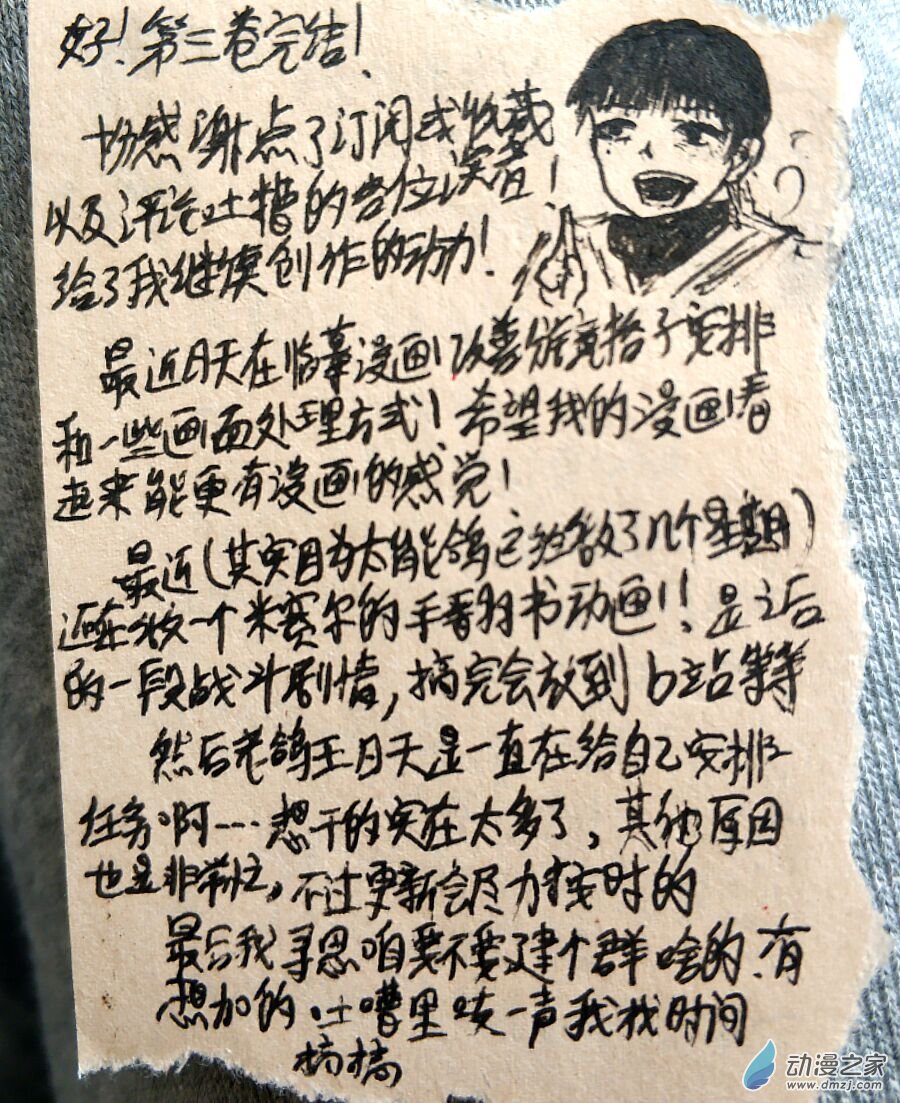 好！第三卷完结！
十分感谢点了订阅或收藏
以及评论吐槽的各位读者！
给了我继续创作的动力！
最近日天在临摹漫画！改善分镜格子安排
和一些画面处理方式！希望我的漫画看
起来能更有漫画的感觉！
最近（其实因为太能鸽已经做了几个星期）
还在做一个米赛尔的手翻书动画！！是之后
的一段战斗剧情，搞完会放到b站等等
然后老鸽王日天是一直在给自己安排
任务啊……想干的实在太多了，其他原因
也是非常忙，不过更新会尽力按时的
最后我寻思咱要不要建个群啥的，有
想加的吐嘈里吱一声我找时间
搞搞
动漫之家
www.dmzj.com